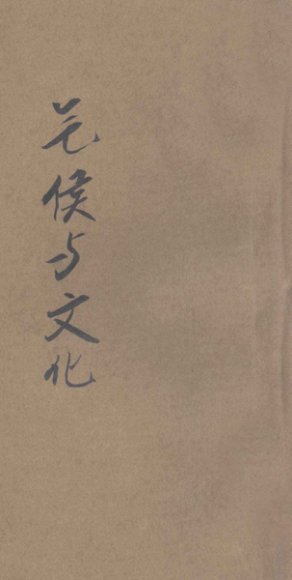 气候与文化